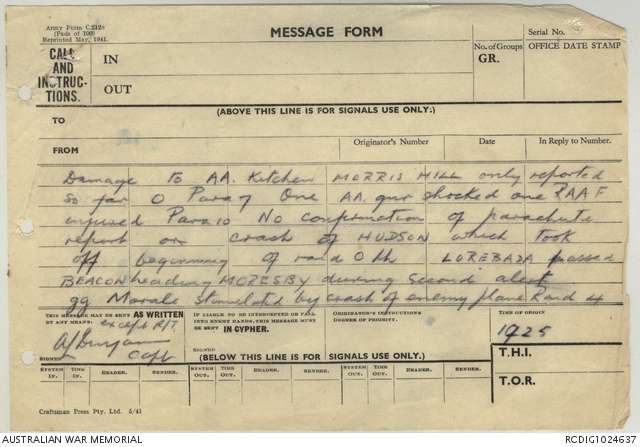 Army Form C.2128
(Pads of 100)
Reprinted May, 1941.
MESSAGE FORM
Serial No.
CALL
AND
INSTRUC-
TIONS.
IN
OUT
No. of Groups
GR.
OFFICE DATE STAMP
(ABOVE THIS LINE IS FOR SIGNALS USE ONLY:)
TO
FROM
Originator's Number
Date
In Reply to Number.
Damage to AA. Kitchen MORRIS HILL only reported
so far O Para 7 One AA. gnr shocked one RAAF
injured Para 10 No confirmation of parachute
report or crash of HUDSON which took
off beginning of raid O th LOREBADA passed
BEACON heading MORESBY during second alert
gg Morale stimulated by crash of enemy plane Raid 4
THIS MESSAGE MAY BE SENT AS WRITTEN
BY ANY MEANS.
except R/T.
Capt
SIGNED
IF LIABLE TO BE INTERCEPTED OR FALL
INTO ENEMY HANDS, THIS MESSAGE MUST
BE SENT IN CYPHER.
SIGNED
ORIGINATOR'S INSTRUCTIONS
DEGREE OF PRIORITY.
TIME OF ORIGIN
1925
T.H.I.
T.O.R.
(BELOW THIS LINE IS FOR SIGNALS USE ONLY.)
SYSTEM IN. TIME IN. READER. SENDER. SYSTEM OUT. TIME OUT. READER. SENDER. SYSTEM OUT. TIME OUT. READER. SENDER.
Craftsman Press Pty. Ltd. 5/41
AUSTRALIAN WAR MEMORIAL
RCDIG1024637